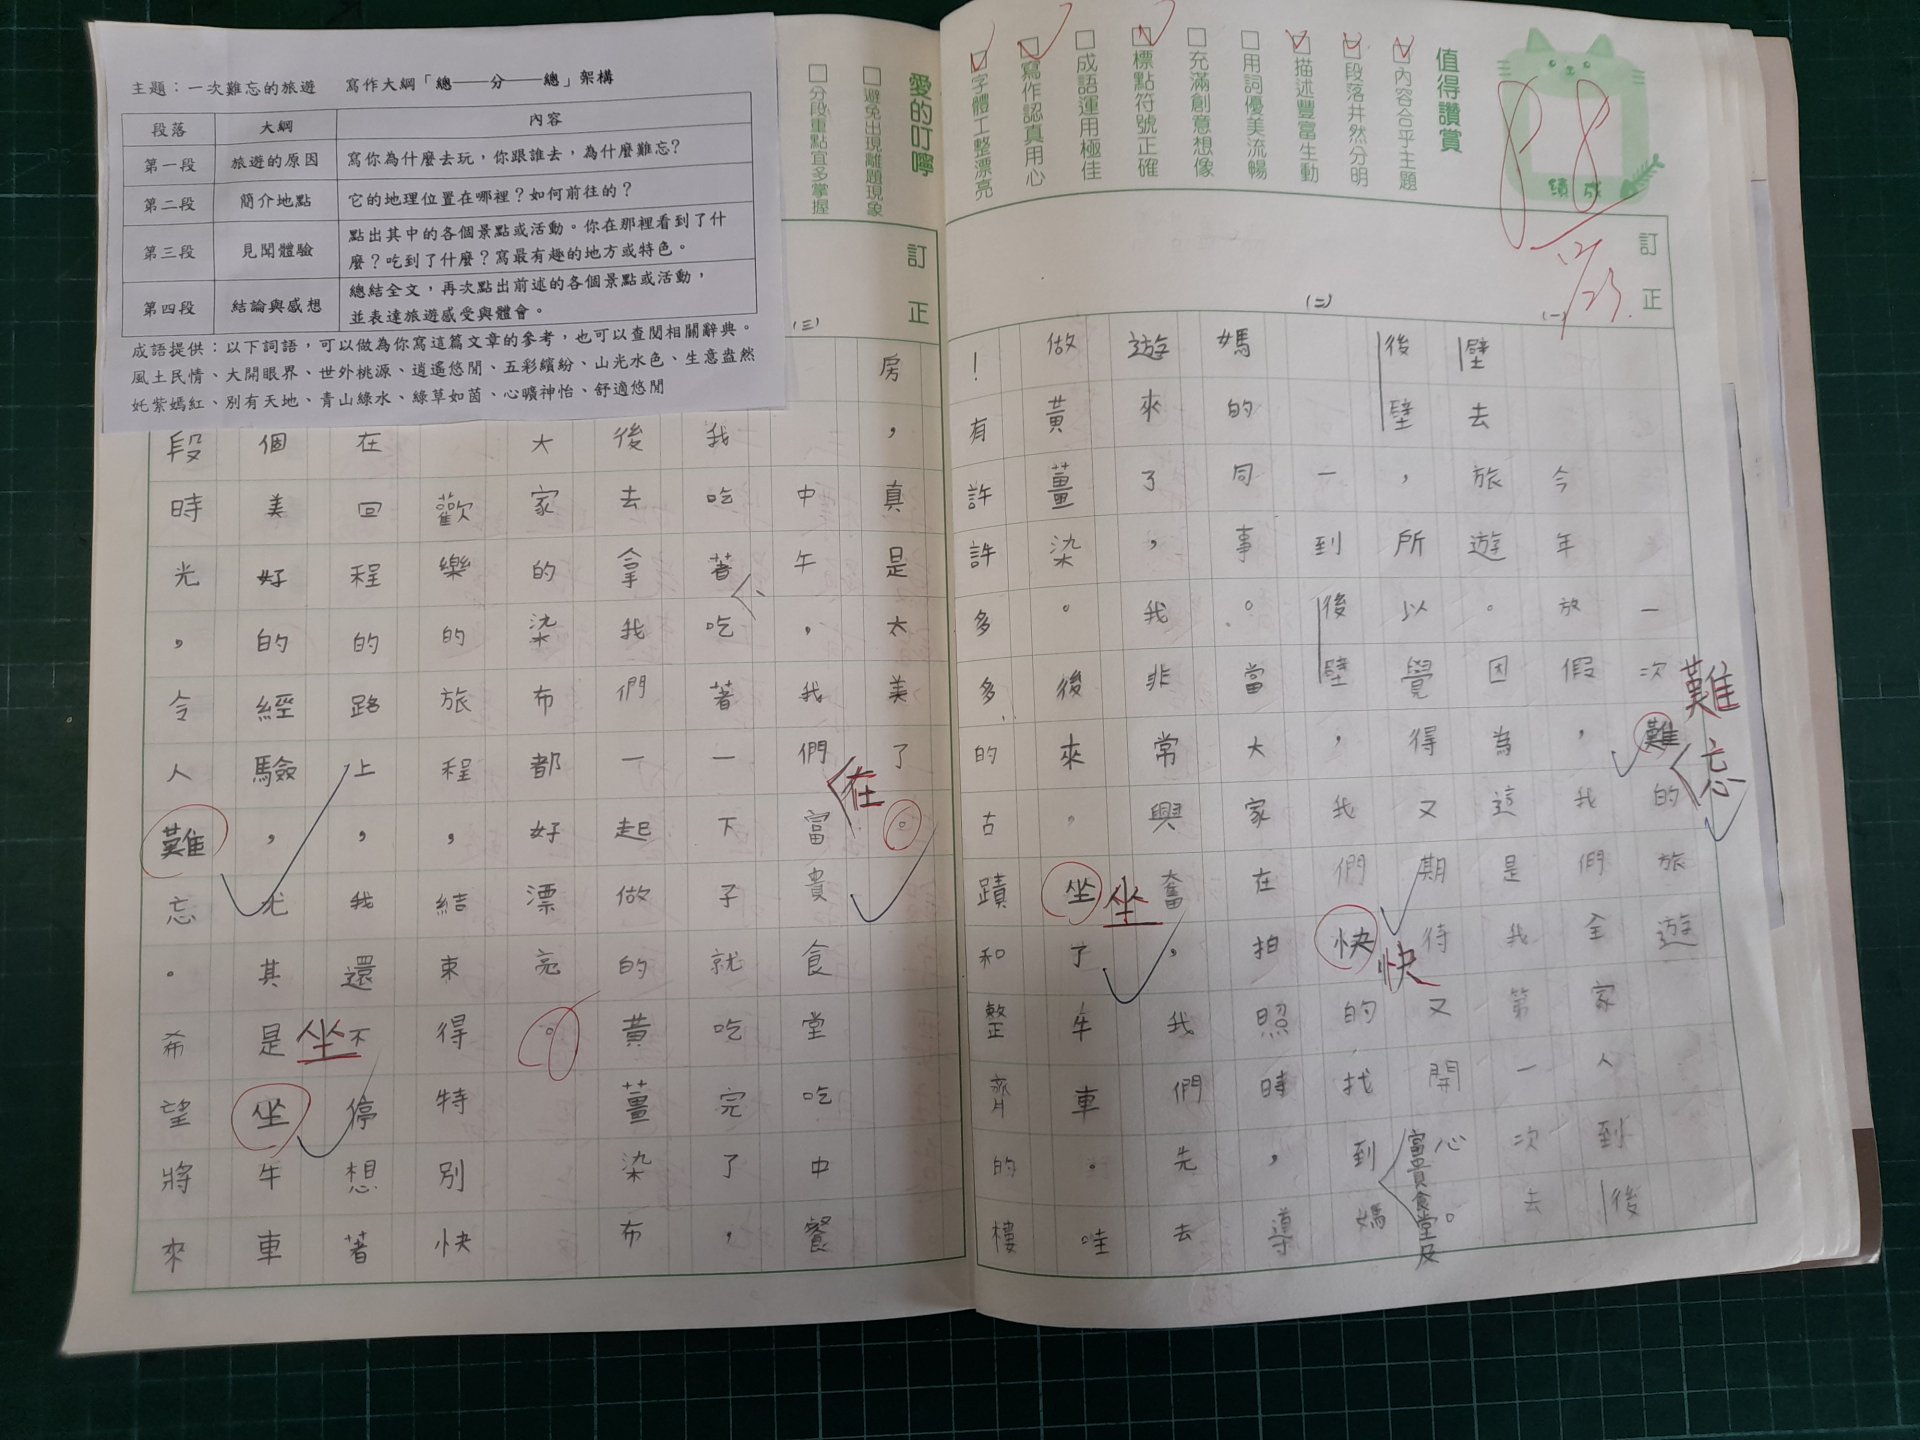 主題：一次難忘的旅遊　寫作大綱「總——分——總」架構
段落　大綱　內容
第一段　旅遊的原因　寫你為什麼去玩，你跟誰去，為什麼難忘？
第二段　簡介地點　它的地理位置在哪裡？如何前往的？
第三段　見聞體驗　點出其中的各個景點或活動。你在那裡看到了什
麼？吃到了什麼？寫最有趣的地方或特色。
第四段　結論與感想　總結全文，再次點出前述的各個景點或活動，
並表達旅遊感受與體會。
成語提供：以下詞語，可以做為你寫這篇文章的參考，也可以查閱相關辭典。
風土民情、大開眼界、世外桃源、逍遙悠閒、五彩繽紛、山光水色、生意盎然
奼紫嫣紅、別有天地、青山綠水、綠草如茵、心曠神怡、舒適悠閒
成績
88
12/23.
值得讚賞
內容合乎主題
段落井然分明
描述豐富生動
用詞優美流暢
充滿創意想像
標點符號正確
成語運用極佳
寫作認真用心
字體工整漂亮
愛的叮嚀
避免出現離題現象
分段重點宜多掌握
訂正
(一)
(二)
訂正
(三)
一次難忘的旅遊
難
今年放假，我們全家人到後
壁去旅遊。因為這是我第一次去
後壁，所以覺得又期待又開心。
一到後壁，我們快的找到富貴食堂及媽
快
媽的同事。當大家在拍照時，導
遊來了，我非常興奮，我們先去
做黃薑染。後來，坐了牛車。哇
坐
！有許許多多的古蹟和整齊的樓
房，真是太美了。
中午，我們在富貴食堂吃中餐
我吃著、吃著一下子就吃完了，
後去拿我們一起做的黃薑染布
大家的染布都好漂亮。
歡樂的旅程，結束得特別快
在回程的路上，我還不停想著
個美好的經驗，尤其是坐牛車
坐
段時光，令人難忘。希望將來